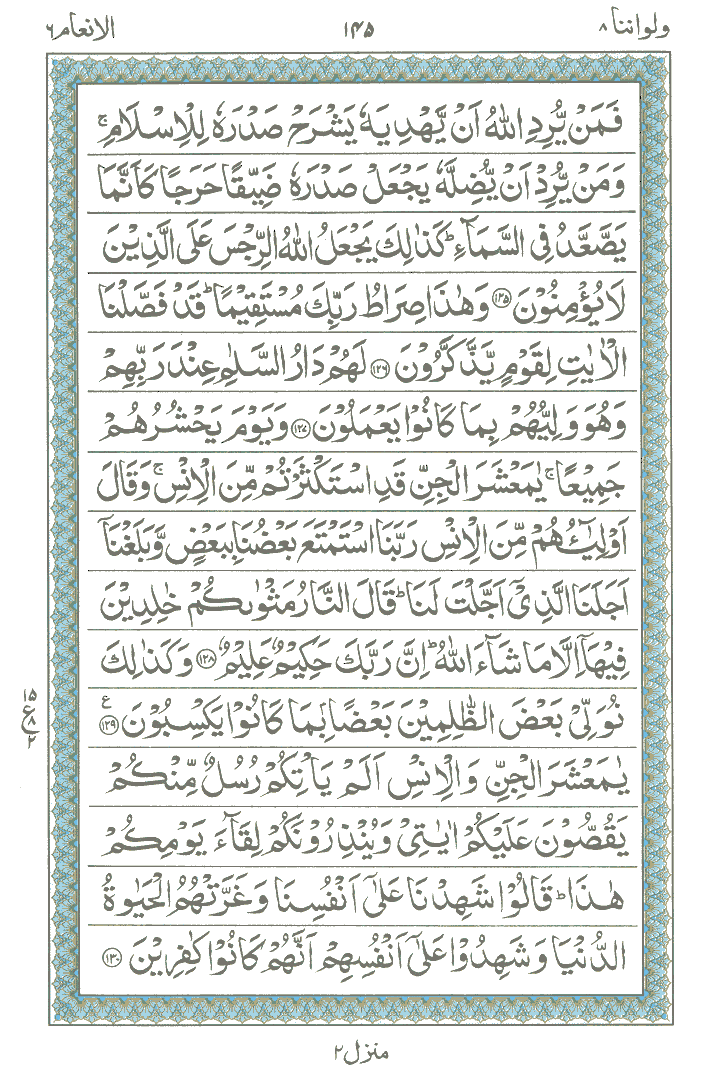 ولواننا ۸
۱۴۵
الانعام ۶
فَمَنْ يُّرِدِ اللّٰهُ اَنْ يَّهْدِيَهٗ يَشْرَحْ صَدْرَهٗ لِلْاِسْلَامِ ۚ
وَمَنْ يُّرِدْ اَنْ يُّضِلَّهٗ يَجْعَلْ صَدْرَهٗ ضَيِّقًا حَرَجًا كَاَنَّمَا
يَصَّعَّدُ فِى السَّمَآءِ ؕ كَذٰلِكَ يَجْعَلُ اللّٰهُ الرِّجْسَ عَلَى الَّذِيْنَ
لَا يُؤْمِنُوْنَ ﴿۱۲۵﴾ وَهٰذَا صِرَاطُ رَبِّكَ مُسْتَقِيْمًا ؕ قَدْ فَصَّلْنَا
الْاٰيٰتِ لِقَوْمٍ يَّذَّكَّرُوْنَ ﴿۱۲۶﴾ لَهُمْ دَارُ السَّلٰمِ عِنْدَ رَبِّهِمْ
وَهُوَ وَلِيُّهُمْ بِمَا كَانُوْا يَعْمَلُوْنَ ﴿۱۲۷﴾ وَيَوْمَ يَحْشُرُهُمْ
جَمِيْعًا ۚ يٰمَعْشَرَ الْجِنِّ قَدِ اسْتَكْثَرْتُمْ مِّنَ الْاِنْسِ ۚ وَقَالَ
اَوْلِيٰٓـُٔهُمْ مِّنَ الْاِنْسِ رَبَّنَا اسْتَمْتَعَ بَعْضُنَا بِبَعْضٍ وَّبَلَغْنَاۤ
اَجَلَنَا الَّذِىْۤ اَجَّلْتَ لَنَا ؕ قَالَ النَّارُ مَثْوٰىكُمْ خٰلِدِيْنَ
فِيْهَاۤ اِلَّا مَا شَآءَ اللّٰهُ ؕ اِنَّ رَبَّكَ حَكِيْمٌ عَلِيْمٌ ﴿۱۲۸﴾ وَكَذٰلِكَ
نُوَلِّىْ بَعْضَ الظّٰلِمِيْنَ بَعْضًا بِمَا كَانُوْا يَكْسِبُوْنَ ﴿۱۲۹﴾ ع
۱۵
ع
۸
۲
يٰمَعْشَرَ الْجِنِّ وَالْاِنْسِ اَلَمْ يَاْتِكُمْ رُسُلٌ مِّنْكُمْ
يَقُصُّوْنَ عَلَيْكُمْ اٰيٰتِىْ وَيُنْذِرُوْنَكُمْ لِقَآءَ يَوْمِكُمْ
هٰذَا ؕ قَالُوْا شَهِدْنَا عَلٰٓى اَنْفُسِنَا وَغَرَّتْهُمُ الْحَيٰوةُ
الدُّنْيَا وَشَهِدُوْا عَلٰٓى اَنْفُسِهِمْ اَنَّهُمْ كَانُوْا كٰفِرِيْنَ ﴿۱۳۰﴾
منزل ۲